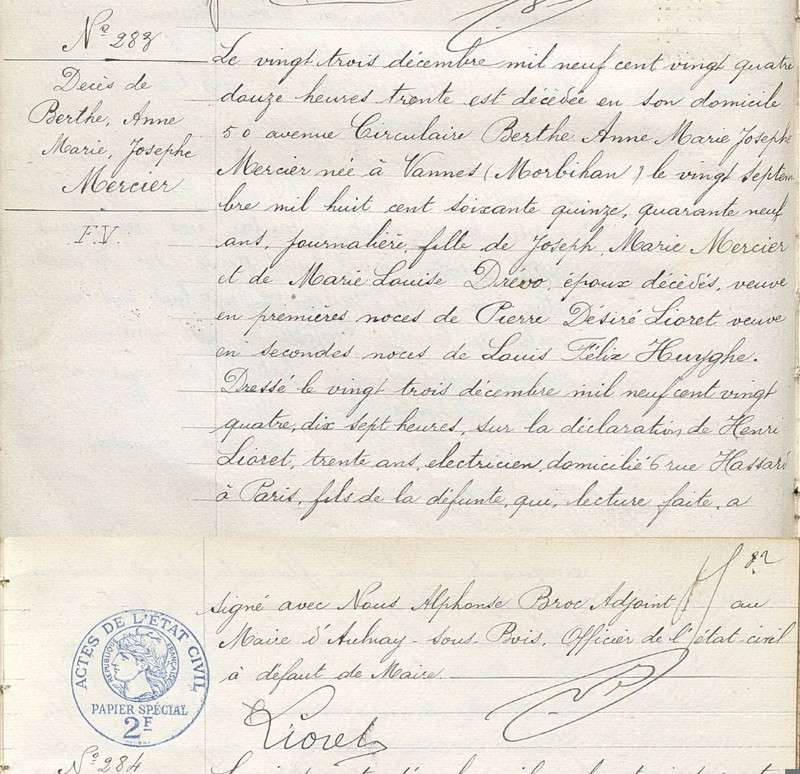 No 283
Decès de
Berthe, Anne
Marie, Josephe
Mercier
F.V.
Le vingt trois décembre mil neuf cent vingt quatre
douze heures trente est décédée en son domicile
50 avenue Circulaire Berthe Anne Marie Josephe
Mercier née à Vannes (Morbihan) le vingt septem
bre mil huit cent soixante quinze, quarante neuf
ans, journalière, fille de Joseph Marie Mercier
et de Marie Louise Drévo, époux décédés, veuve
en premières noces de Pierre Désiré Lioret veuve
en secondes noces de Louis Félix Huyghe.
Dressé le vingt trois décembre mil neuf cent vingt
quatre, dix sept heures, sur la déclaration de Henri
Lioret, trente ans, electricien, domicilié 6 rue Hassard
à Paris, fils de la défunte, qui, lecture faite, a
82
signé avec Nous Alphonse Broc Adjoint au
Maire d'Aulnay-sous-Bois, Officier de l'état civil
à défaut de Maire.
Lioret
ACTES DE L'ÉTAT CIVIL
RÉPUBLIQUE FRANÇAISE
PAPIER SPÉCIAL
2F
No 284